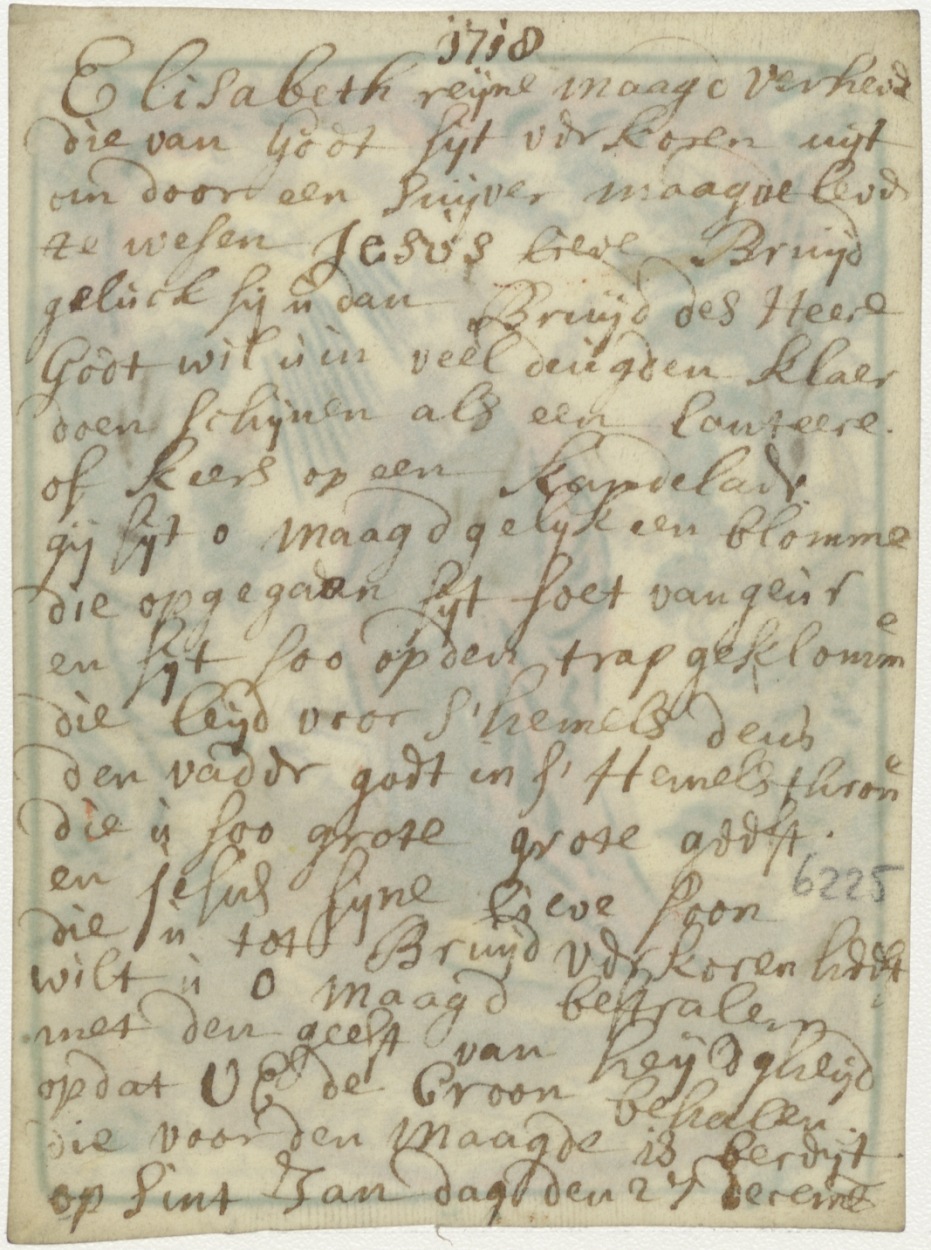 1718
Elisabeth reijne maagd verheve
die van Godt sijt vĕrkoren uijt
om door een suijver maagde leven
te wesen Jesus lieve Bruijd
geluck sij u dan Bruijd des Heere
Godt wil u in veel deugden klaer
doen schijnen als een lanteere.
of keers op een kandelaer
gij sijt o Maagd gelijk een blomme
die opgegaen sijt soet van geur
en sijt soo op den trap geklomme
die leijd voor s'hemels deur
den vader godt in s'Hemels thron
die u soo grote grote geeft.
en Jesus sijne lieve soon
6225
die u tot Bruijd verkoren heeft
wilt u o Maagd bestralen
met den geest van heijdgheijd
opdat UE de Croon behalen.
die voor den Maagde is bereijt.
op Sint Jan dag den 27 decemb